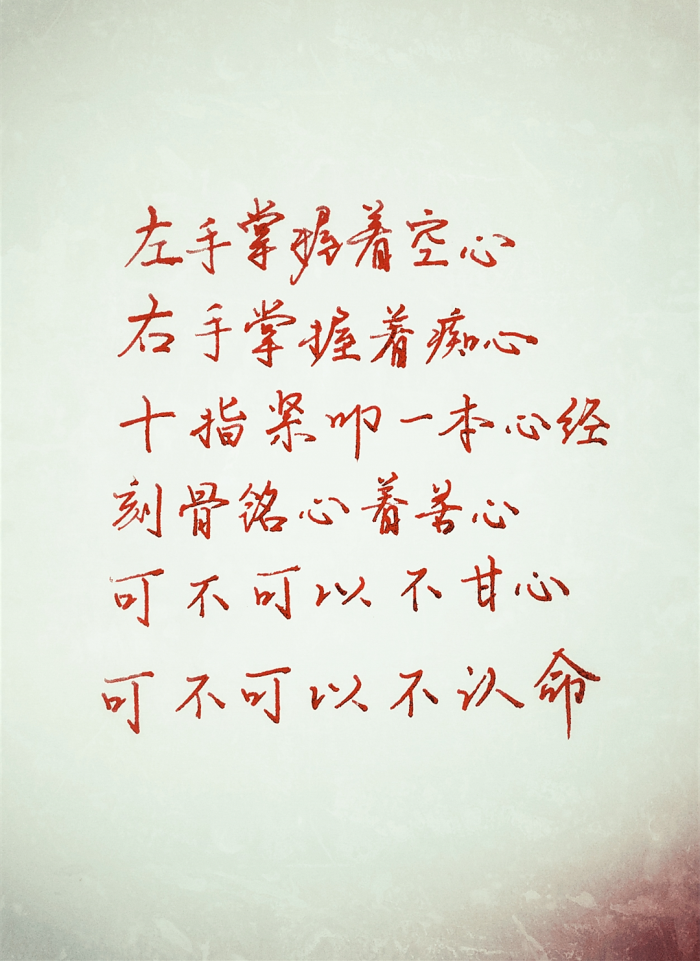 左手掌握着空心
右手掌握着痴心
十指紧叩一本心经
刻骨铭心着苦心
可不可以不甘心
可不可以不认命